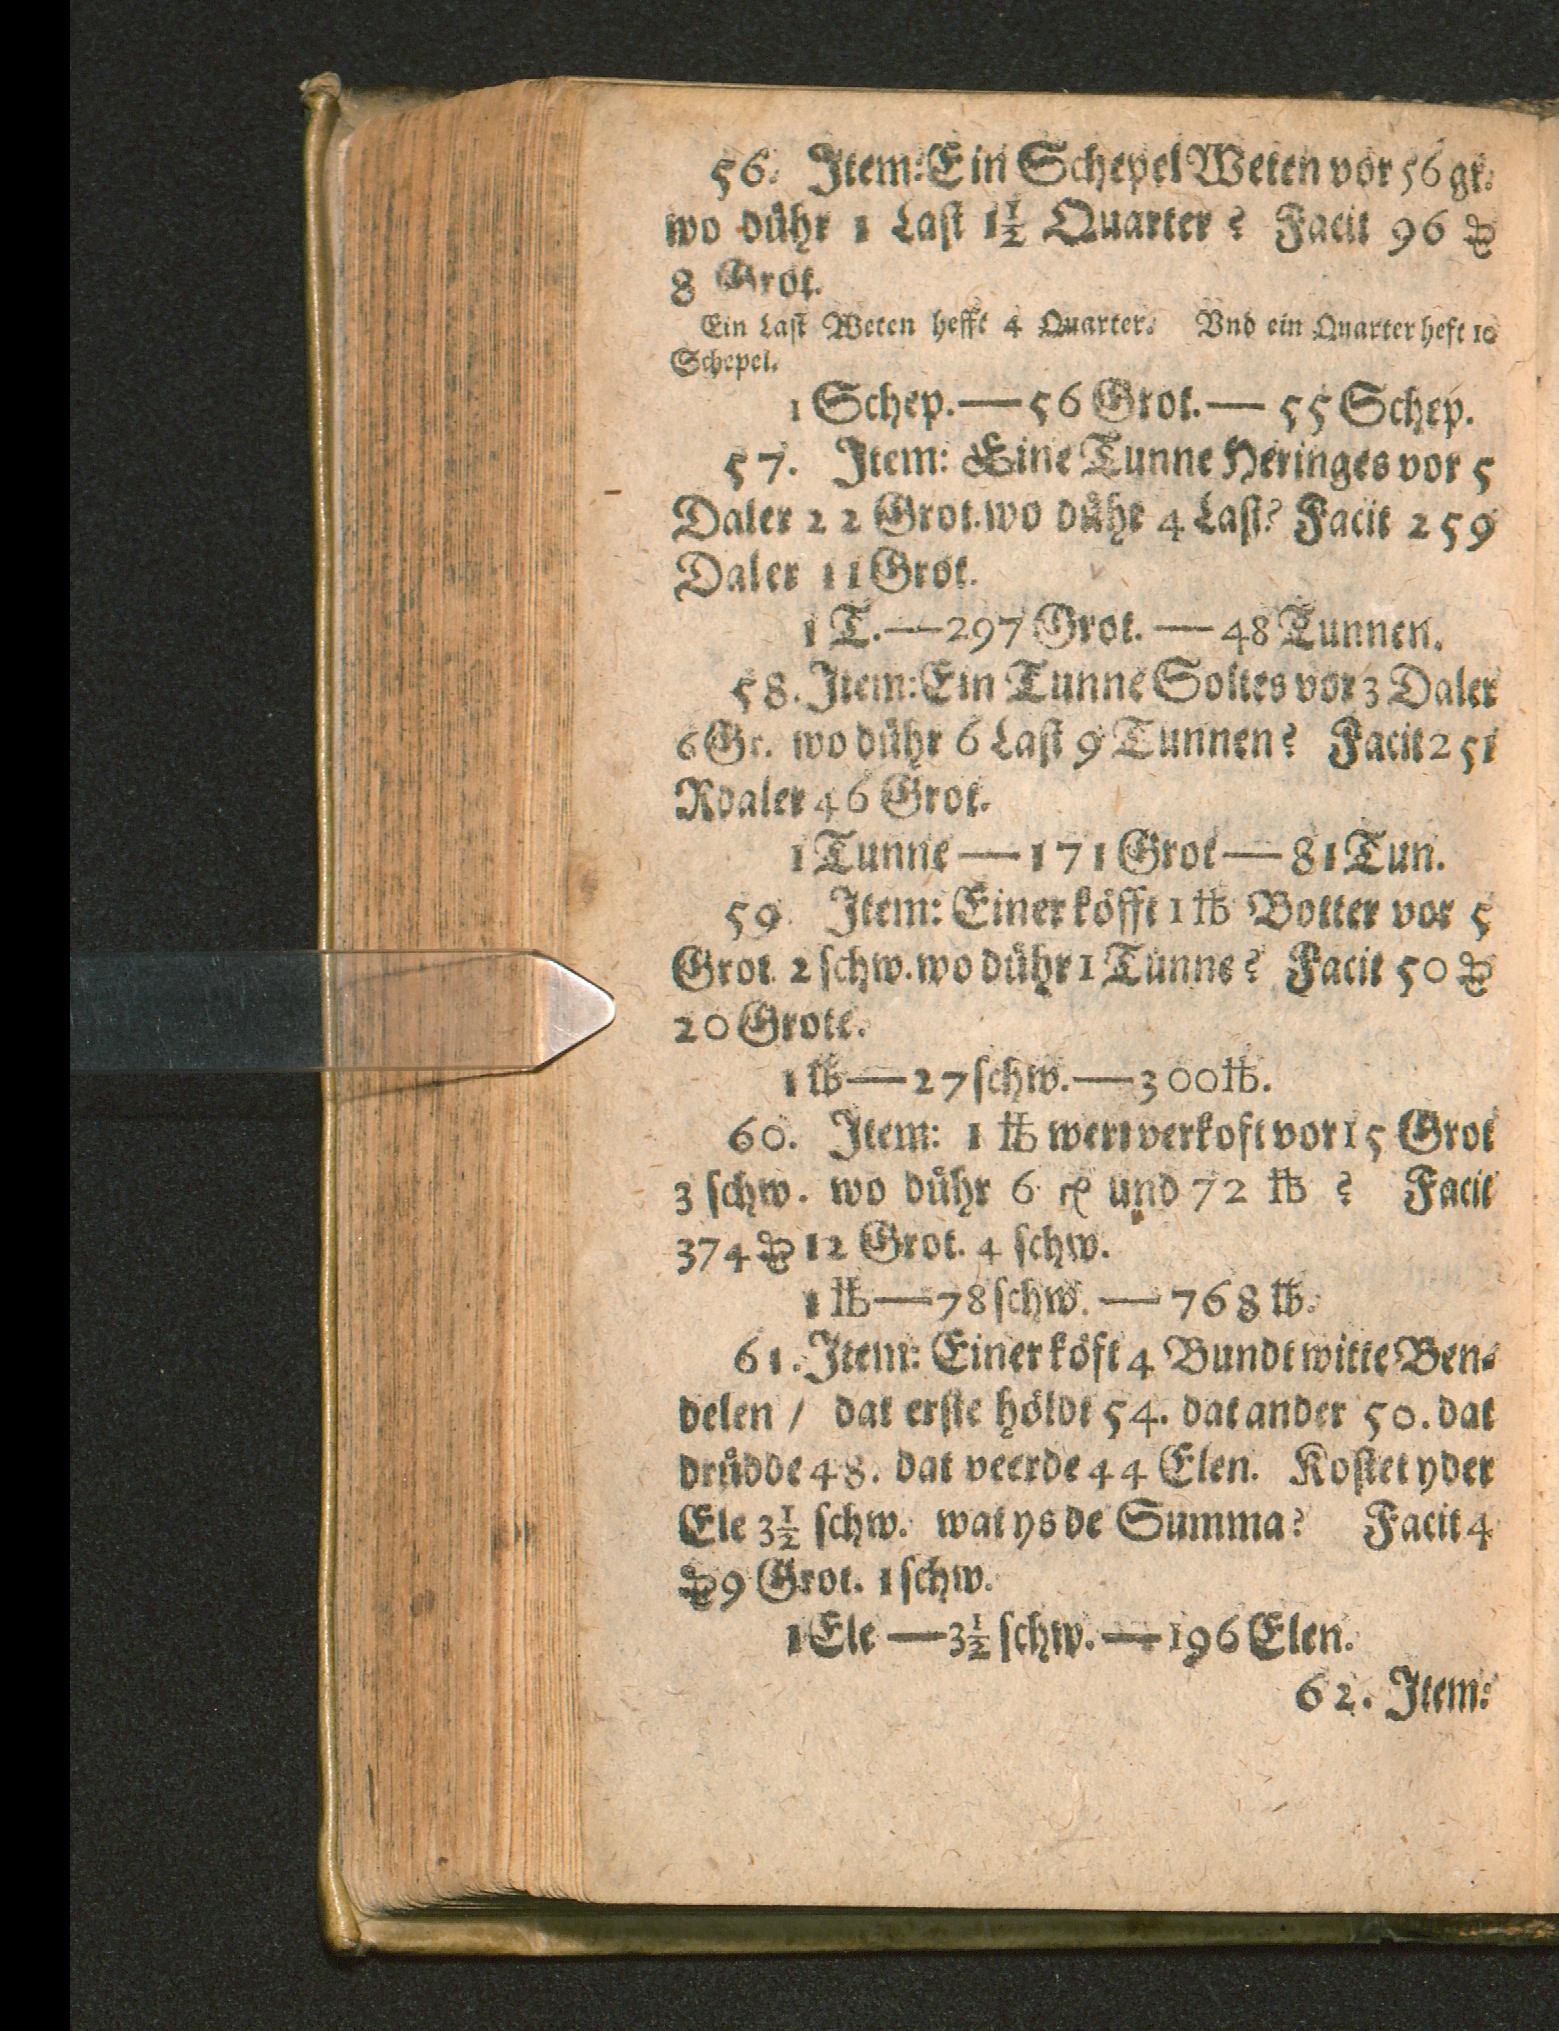 56. Item: Ein Schepel Weten vor 56 gr.
wo důhr 1 Last 1½ Quarter? Facit 96 ₰
8 Grot.
Ein Last Weten hefft 4 Quarter. Vnd ein Quarter heft 10
Schepel.
1 Schep.—56 Grot.—55 Schep.
57. Item: Eine Tunne Heringes vor 5
Daler 22 Grot. wo důhr 4 Last? Facit 259
Daler 11 Grot.
1 T.—297 Grot.—48 Tunnen.
58. Item: Ein Tunne Soltes vor 3 Daler
6 Gr. wo důhr 6 Last 9 Tunnen? Facit 251
Rdaler 46 Grot.
1 Tunne—171 Grot—81 Tun.
59. Item: Einer köfft 1 ℔ Botter vor 5
Grot 2 schw. wo důhr 1 Tunne? Facit 50 ₰
20 Grote.
1 ℔—27 schw.—300 ℔.
60. Item: 1 ℔ wert verkoft vor 15 Grot
3 schw. wo důhr 6 und 72 ℔? Facit
374 ₰ 12 Grot. 4 schw.
1 ℔—78 schw.—768 ℔.
61. Item: Einer köft 4 Bundt witte Ben⸗
delen / dat erste höldt 54. dat ander 50. dat
drůdde 48. dat veerde 44 Elen. Kostet yder
Ele 3½ schw. wat ys de Summa? Facit 4
₰ 9 Grot. 1 schw.
1 Ele—3½ schw.—196 Elen.
62. Item: